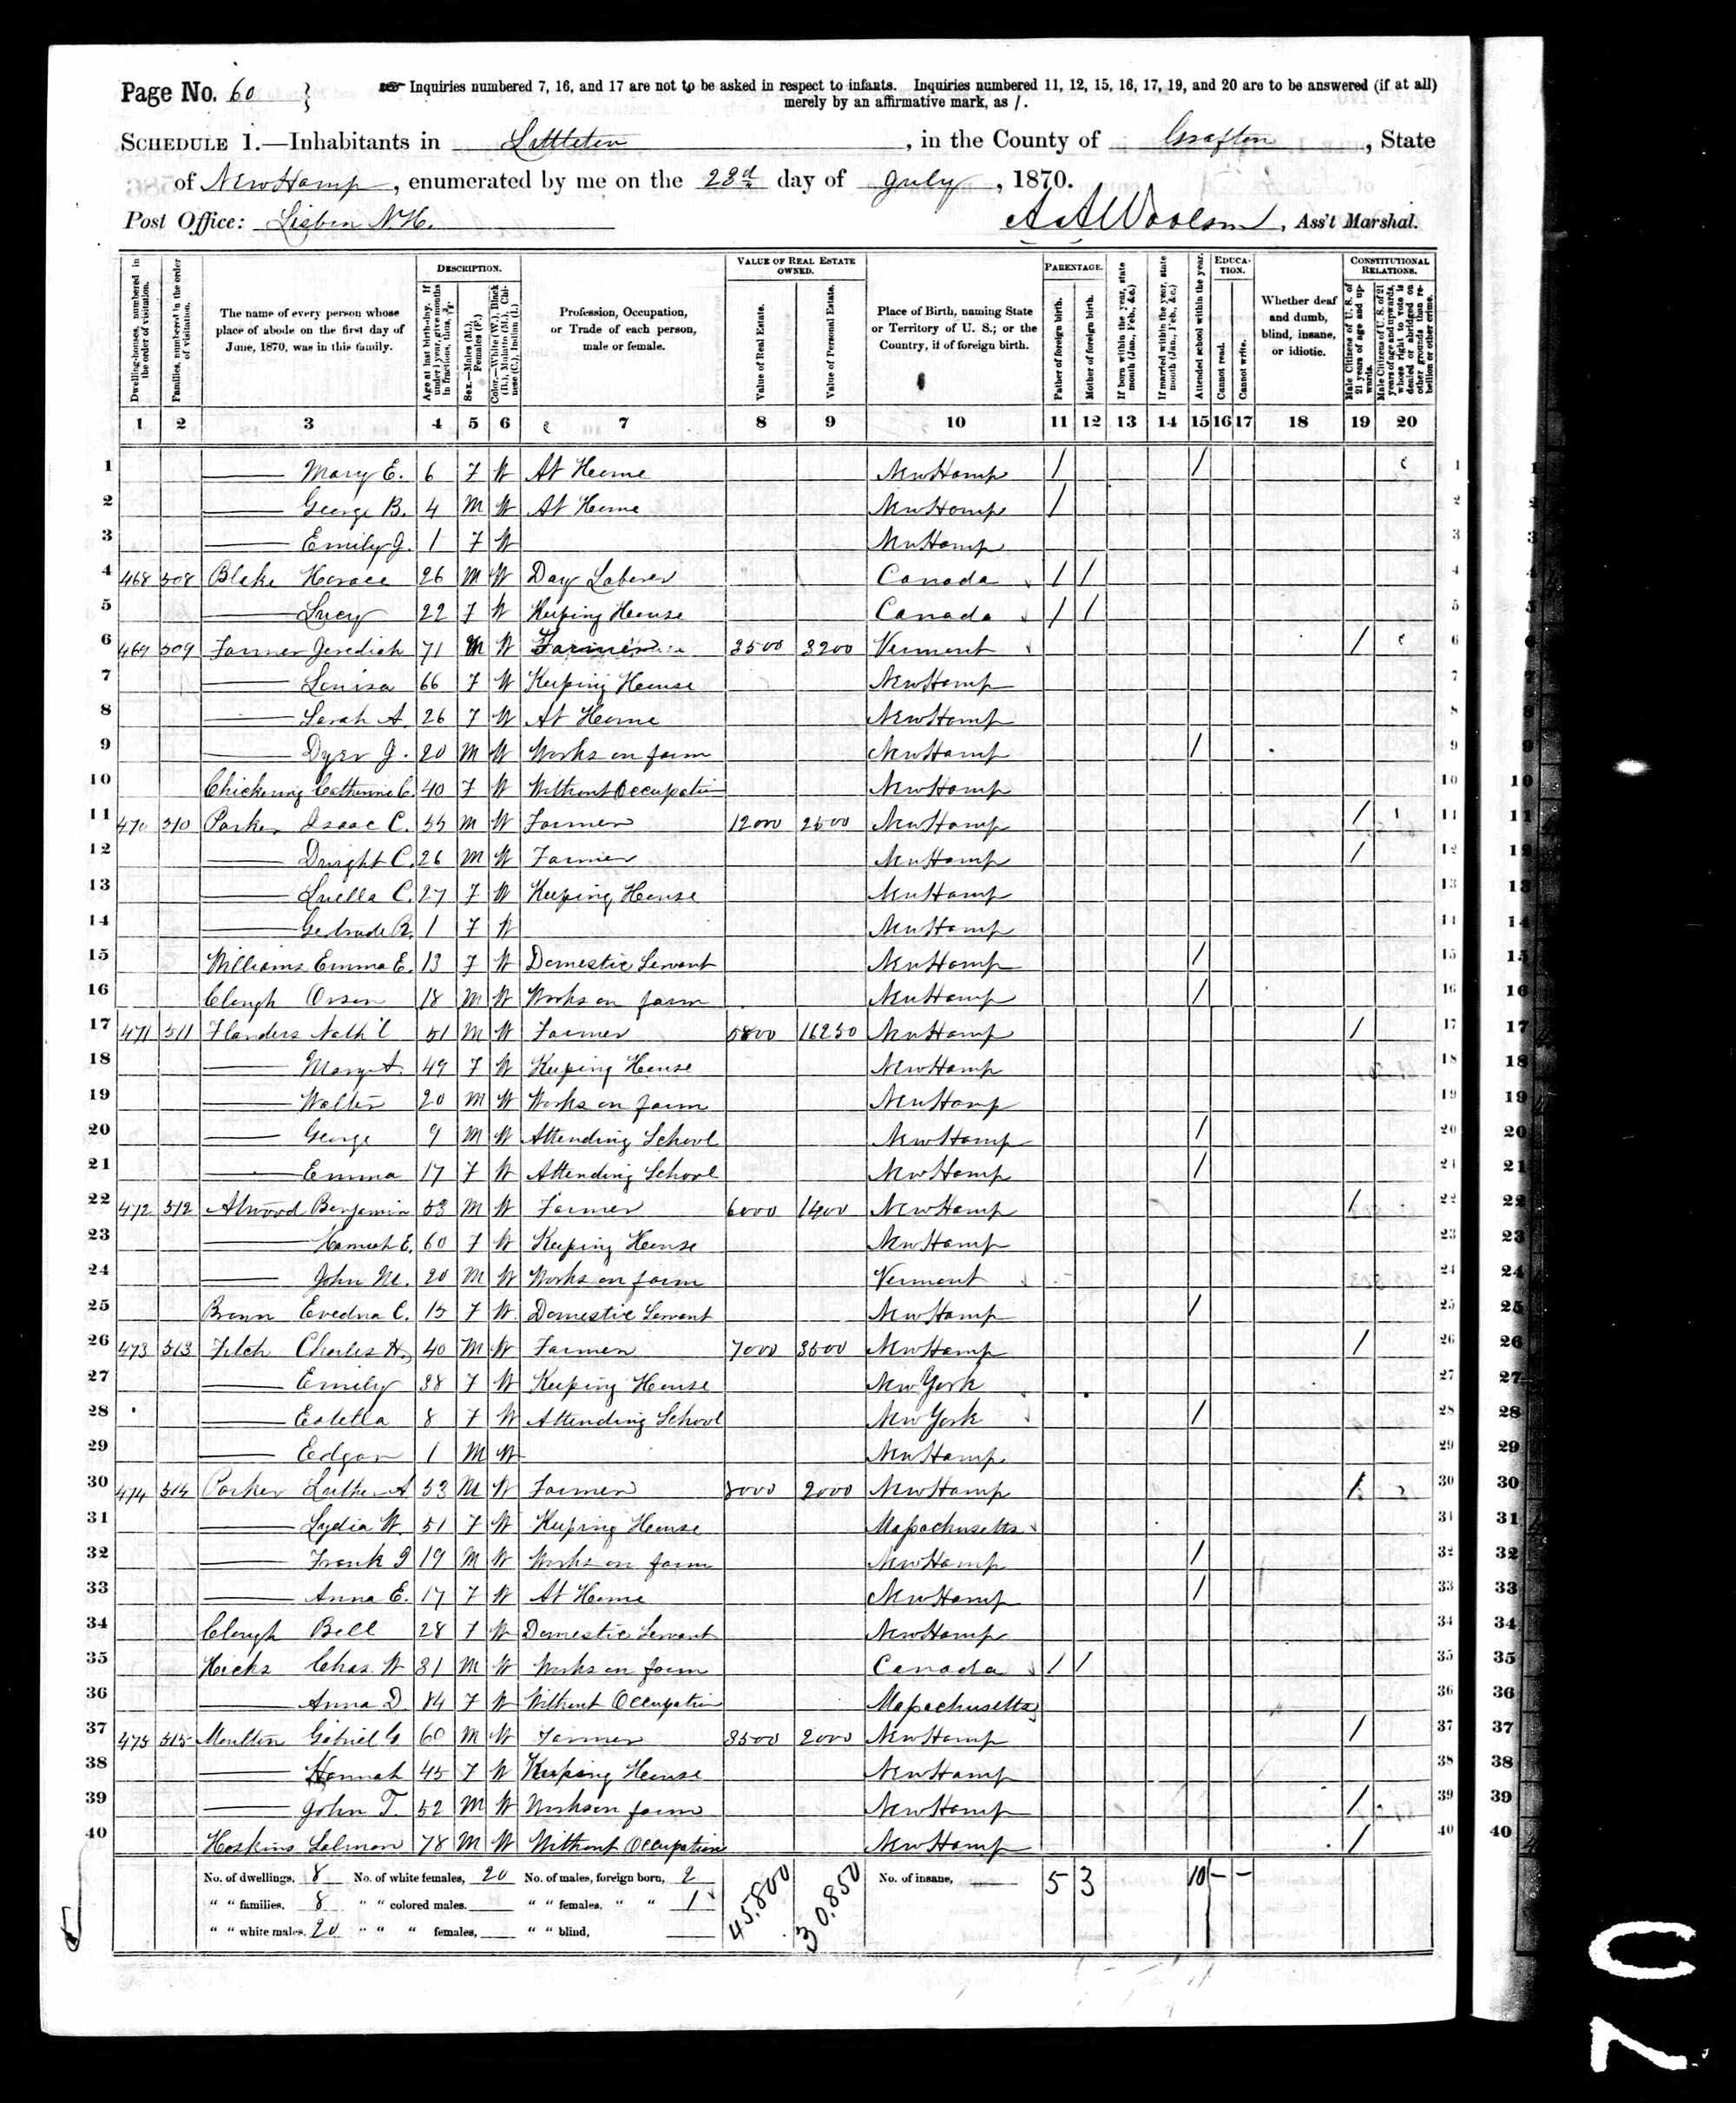 Page No. 60
Inquiries numbered 7, 16, and 17 are not to be asked in respect to infants. Inquiries numbered 11, 12, 15, 16, 17, 19, and 20 are to be answered (if at all)
merely by an affirmative mark, as /.
SCHEDULE 1.—Inhabitants in Littleton, in the County of Grafton, State
of New Hamp, enumerated by me on the 23d day of July, 1870.
Post Office: Lisbon N.H. A A Woolson, Ass't Marshal.
Dwelling-houses, numbered in the order of visitation.
Families, numbered in the order of visitation.
The name of every person whose place of abode on the first day of June, 1870, was in this family.
DESCRIPTION.
Age at last birth-day. If under 1 year, give months in fractions, thus, 3/12.
Sex.—Males (M.), Females (F.)
Color.—White (W.), Black (B.), Mulatto (M.), Chinese (C.), Indian (I.)
Profession, Occupation, or Trade of each person, male or female.
VALUE OF REAL ESTATE OWNED.
Value of Real Estate.
Value of Personal Estate.
Place of Birth, naming State or Territory of U. S.; or the Country, if of foreign birth.
PARENTAGE.
Father of foreign birth.
Mother of foreign birth.
If born within the year, state month (Jan., Feb., &c.)
If married within the year, state month (Jan., Feb., &c.)
Attended school within the year.
EDUCATION.
Cannot read.
Cannot write.
Whether deaf and dumb, blind, insane, or idiotic.
CONSTITUTIONAL RELATIONS.
Male Citizens of U. S. of 21 years of age and upwards.
Male Citizens of U. S. of 21 years of age and upwards, whose right to vote is denied or abridged on other grounds than rebellion or other crime.
1 2 3 4 5 6 7 8 9 10 11 12 13 14 15 16 17 18 19 20
1 —— Mary E. 6 F W At Home New Hamp / / 1
2 —— George B. 4 M W At Home New Hamp / 2
3 —— Emily J. 1 F W New Hamp 3
4 468 508 Blake Horace 26 M W Day Laborer Canada / / 4
5 —— Lucy 22 F W Keeping House Canada / / 5
6 469 509 Farmer Jerediah 71 M W Farmer 3500 3200 Vermont / 6
7 —— Louisa 66 F W Keeping House New Hamp 7
8 —— Sarah A. 26 F W At Home New Hamp 8
9 —— Dyer J. 20 M W Works on farm New Hamp / 9
10 Chickering Catherine C. 40 F W Without Occupation New Hamp 10
11 470 510 Parker Isaac C. 55 M W Farmer 12000 2500 New Hamp / 11
12 —— Dwight C. 26 M W Farmer New Hamp / 12
13 —— Luella C. 27 F W Keeping House New Hamp 13
14 —— Gertrude R. 1 F W New Hamp 14
15 Williams Emma E. 13 F W Domestic Servant New Hamp / 15
16 Clough Orson 18 M W Works on farm New Hamp / 16
17 471 511 Flanders Nath'l 51 M W Farmer 5800 16250 New Hamp / 17
18 —— Mary A. 49 F W Keeping House New Hamp 18
19 —— Walter 20 M W Works on farm New Hamp 19
20 —— George 9 M W Attending School New Hamp / 20
21 —— Emma 17 F W Attending School New Hamp / 21
22 472 512 Atwood Benjamin 53 M W Farmer 6000 1400 New Hamp / 22
23 —— Hannah E. 60 F W Keeping House New Hamp 23
24 —— John M. 20 M W Works on farm Vermont 24
25 Brown Evedna C. 15 F W Domestic Servant New Hamp / 25
26 473 513 Fitch Charles H. 40 M W Farmer 7000 3500 New Hamp / 26
27 —— Emily 38 F W Keeping House New York 27
28 —— Estella 8 F W Attending School New York / 28
29 —— Edgar 1 M W New Hamp 29
30 474 514 Parker Luther A 53 M W Farmer 8000 2000 New Hamp / 30
31 —— Lydia W. 51 F W Keeping House Massachusetts 31
32 —— Frank I 19 M W Works on farm New Hamp / 32
33 —— Anna E. 17 F W At Home New Hamp / 33
34 Clough Bell 28 F W Domestic Servant New Hamp 34
35 Hicks Chas. W 31 M W Works on farm Canada / / 35
36 —— Anna D. 84 F W Without Occupation Massachusetts 36
37 475 515 Moulton Gabriel G 60 M W Farmer 3500 2000 New Hamp / 37
38 —— Hannah 45 F W Keeping House New Hamp 38
39 —— John T. 52 M W Works on farm New Hamp / 39
40 Hoskins Salmon 78 M W Without Occupation New Hamp / 40
No. of dwellings, 8 No. of white females, 20 No. of males, foreign born, 2 45,800 30,850 No. of insane, 5 3 10 – –
" " families, 8 " " colored males, " " females, " " 1
" " white males, 20 " " " females, " " blind,